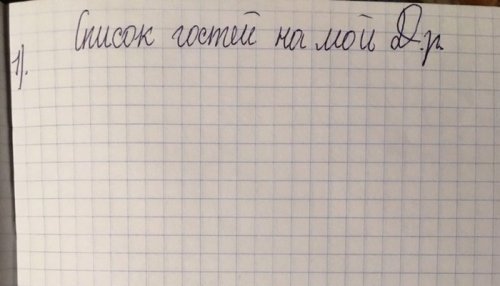 Список гостей на мой Д.р.
1).